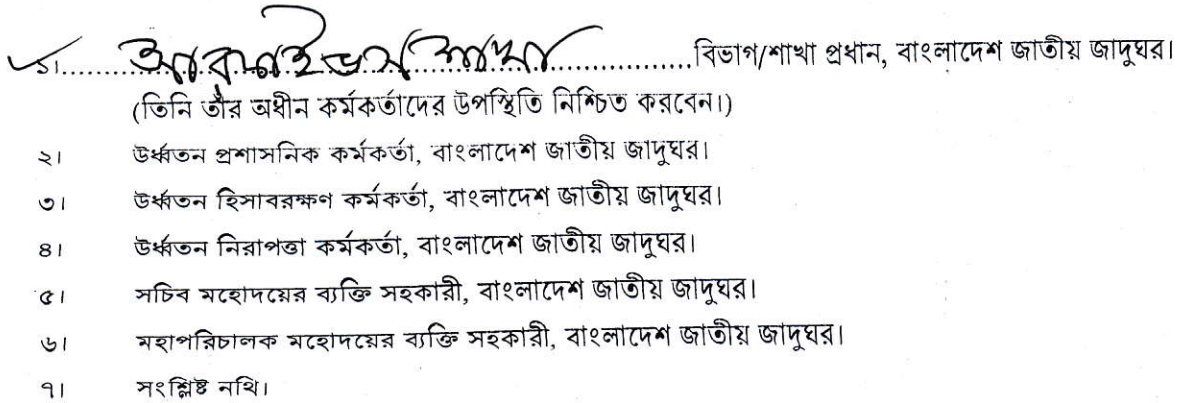 ১। আরকাইভস শাখা বিভাগ/শাখা প্রধান, বাংলাদেশ জাতীয় জাদুঘর।
(তিনি তাঁর অধীন কর্মকর্তাদের উপস্থিতি নিশ্চিত করবেন।)
২। উর্ধ্বতন প্রশাসনিক কর্মকর্তা, বাংলাদেশ জাতীয় জাদুঘর।
৩। উর্ধ্বতন হিসাবরক্ষণ কর্মকর্তা, বাংলাদেশ জাতীয় জাদুঘর।
৪। উর্ধ্বতন নিরাপত্তা কর্মকর্তা, বাংলাদেশ জাতীয় জাদুঘর।
৫। সচিব মহোদয়ের ব্যক্তি সহকারী, বাংলাদেশ জাতীয় জাদুঘর।
৬। মহাপরিচালক মহোদয়ের ব্যক্তি সহকারী, বাংলাদেশ জাতীয় জাদুঘর।
৭। সংশ্লিষ্ট নথি।